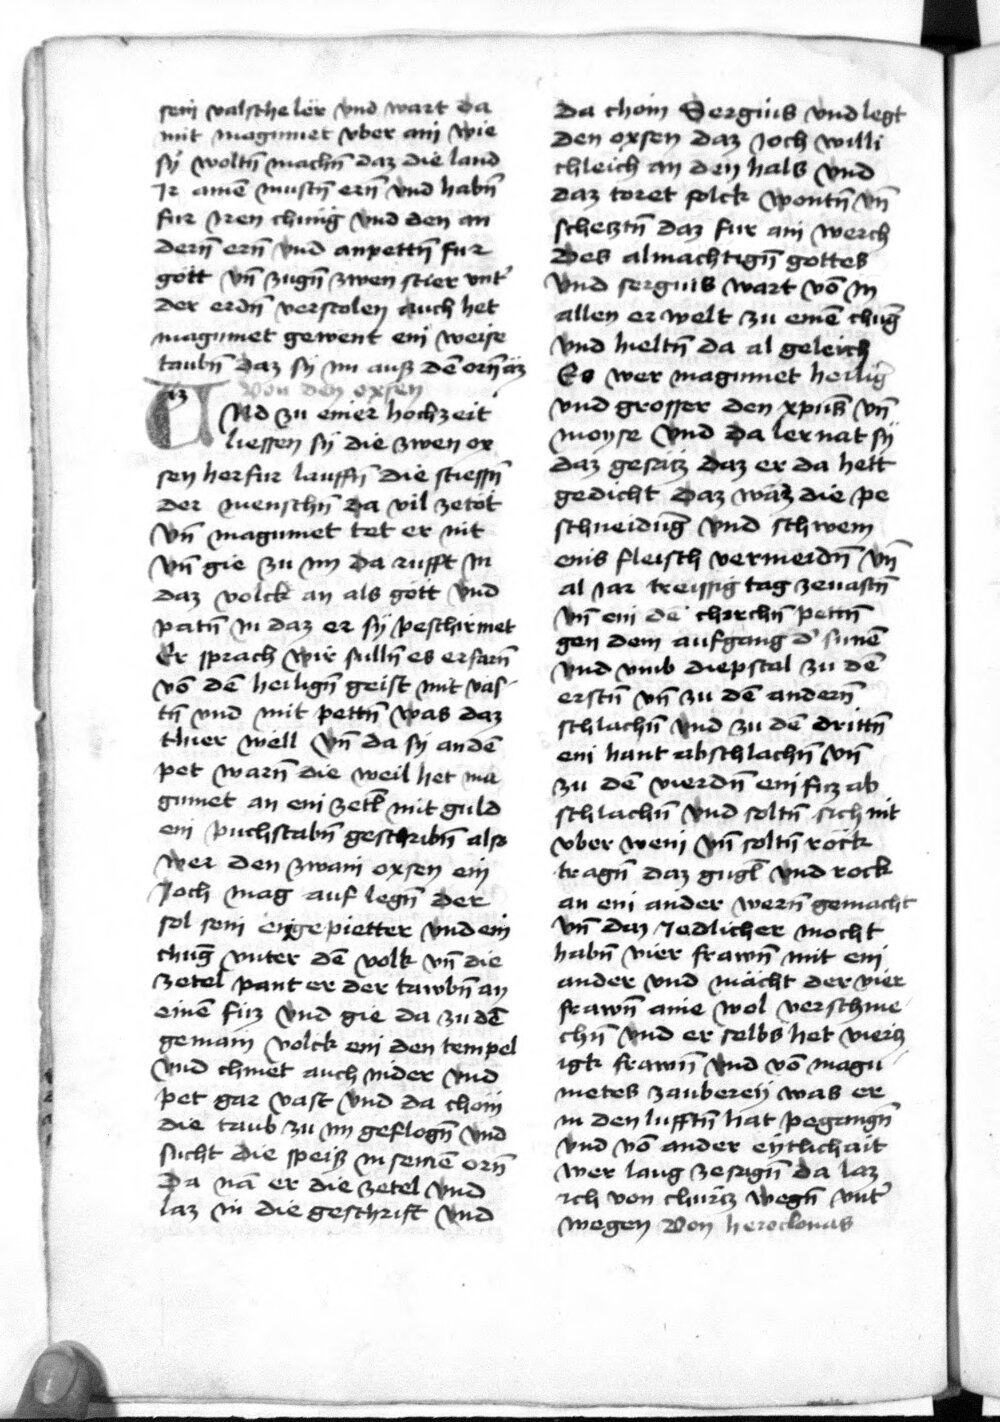 sein valscheler vnd wart da
mit magumet vber ain wie
sÿ woltn̄ machn̄ daz die land
Ir ainē mustn̄ ern̄ vnd habn̄
fur iren chunig vnd den an
dern̄ ern̄ vnd anpettn̄ fur
gott vn̄ zugn̄ zwen stier vnt'
der erdn̄ verstolen auch het
magumet gewent ein weise
taubn̄ daz sÿ im auß dē orn̄ äz
tiz Von den oxsen
VNd zu einer hochzeit
liessen sÿ die zwen ox
sen herfur lauffn̄ die stiessn̄
der menschn̄ da vil zetöt
vn̄ magumet tet er nit
vn̄ gie zu im da rufft in
daz volck an als gott vnd
patn̄ in daz er sÿ peschirmet
Er sprach wir sulln̄ es erfarn̄
vō dē heilign̄ geist mit vas-
tn̄ vnd mit pettn̄ was daz
thier well vn̄ da sÿ an dē
pet warn̄ die weil het ma
gumet an ein zetl mit guld
ein puchstabn̄ geschribn̄ also
wer den zwain oxsen ein
Joch mag auf legn̄ der
sol sein ewr gepietter vnd ein
chuḡ vnter dē volk vn̄ die
zetel pant er der tawbn̄ an
einē fuz vnd gie da zu dē
gemain volck ein den tempel
vnd chniet auch nider vnd
pet gar vast vnd da chom
die taub zu im geflogn̄ vnd
sucht die speiß in seinē orn̄
Da nā er die zetel vnd
laz in die geschrift vnd
da chom Sergius vnd legt
den oxsen daz Joch willi
chleich an den hals vnd
daz toret folck wontn̄ vn̄
scheztn̄ daz fur ain werch
des almachtign̄ gottes
vnd sergius wart vō in
allen erwelt zu einē chuḡ
vnd hieltn̄ da al geleich
Es wer magumet heilig'
vnd grosser den xpūs vn̄
moyse vnd da lernat sÿ
daz gesätz daz er da hett
gedicht daz waz die pe
schneidūg vnd schwein
eins fleisch vermeidn̄ vn̄
al iar treissig tag zeuastn̄
vn̄ ein dē chirchn̄ pettn̄
gen dem aufgang d' sunē
vnd vmb diepstal zu dē
erstn̄ vn̄ zu dē andern̄
schlachn̄ vnd zu dē drittn̄
ein hant abschlachn̄ vn̄
zu dē vierdn̄ ein fuz ab
schlachn̄ vnd soltn̄ sich nit
vber wein vn̄ soltn̄ röck
tragn̄ daz gugl vnd rock
an ein ander wern̄ gemacht
vn̄ daz Jedlicher mocht
habn̄ vier frawn̄ mit ein
ander vnd mächt der vier
frawn̄ anie wol verschme-
chn̄ vnd er selbs het vierz
igk frawn̄ vnd vō magu
metes zaubereÿ was er
in den lufftn̄ hat pegangn̄
vnd vō ander eÿtlichait
wer laug zesagn̄ da laz
ich von churtz wegn̄ vnt'
wegen Von heroclonas